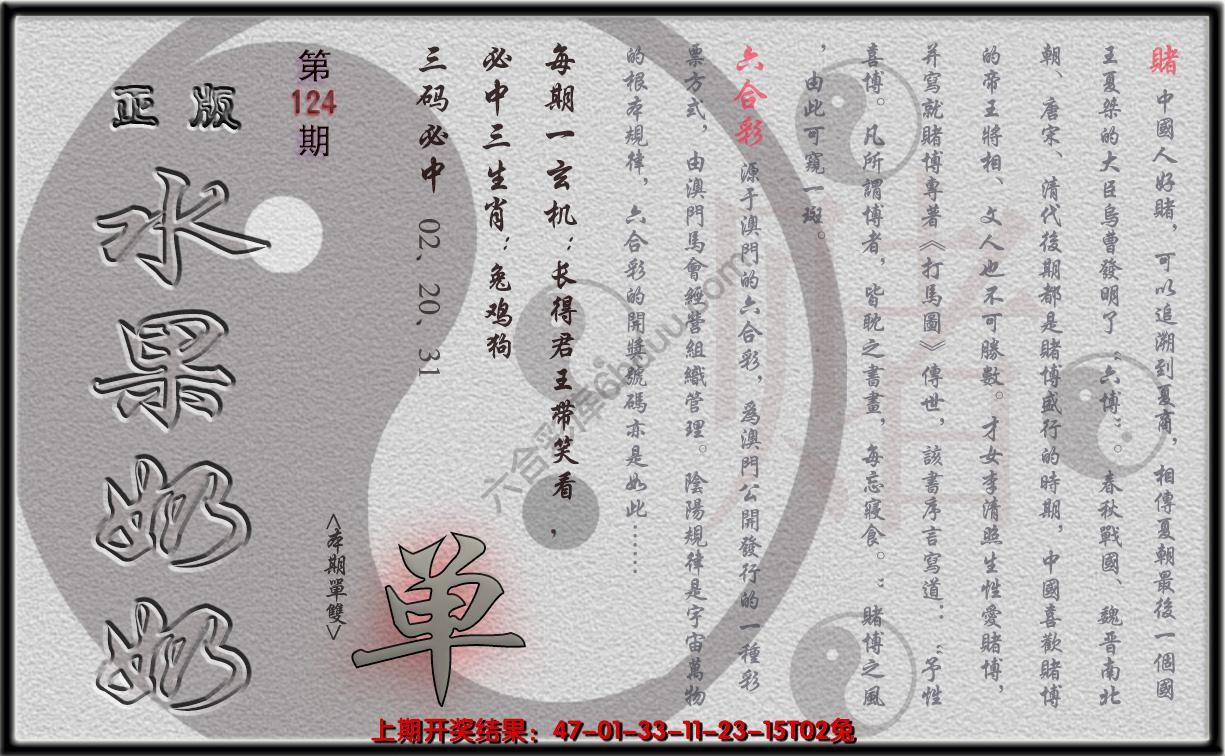 賭 中國人好賭，可以追溯到夏商，相傳夏朝最後一個國
王夏桀的大臣烏曹發明了“六博”。春秋戰國、魏晋南北
朝、唐宋、清代後期都是賭博盛行的時期，中國喜歡賭博
的帝王將相、文人也不可勝數。才女李清照生性愛賭博，
并寫就賭博專著《打馬圖》傳世，該書序言寫道：“予性
喜博。凡所謂博者，皆耽之晝畫，每忘寢食。”賭博之風
，由此可窺一斑。
六合彩 源于澳門的六合彩，爲澳門公開發行的一種彩
票方式，由澳門馬會經營組織管理。陰陽規律是宇宙萬物
的根本規律，六合彩的開獎號碼亦是如此……
每期一玄机：长得君王带笑看，
必中三生肖：兔鸡狗
三码必中 02、20、31
第
124
期
正版
水果奶奶
<本期單雙>
单
賭
六合彩库6huuu.com
上期开奖结果：47-01-33-11-23-15T02兔